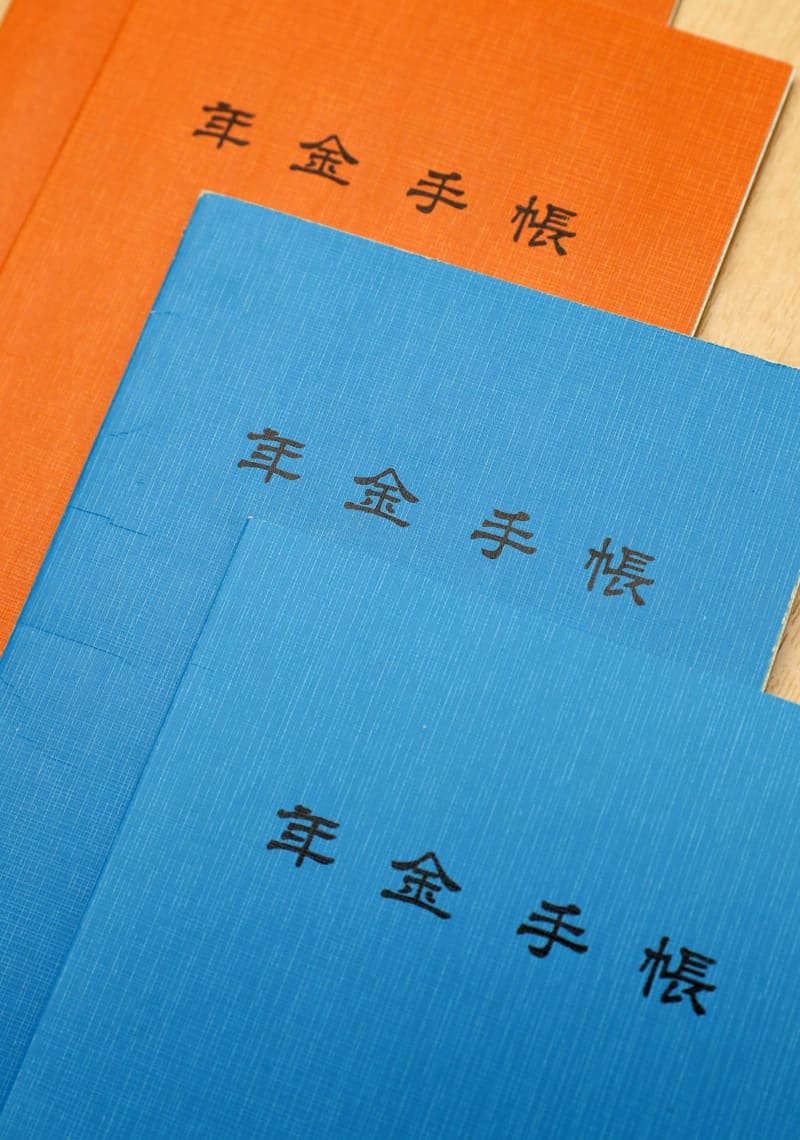 年金手帳
年金手帳
年金手帳